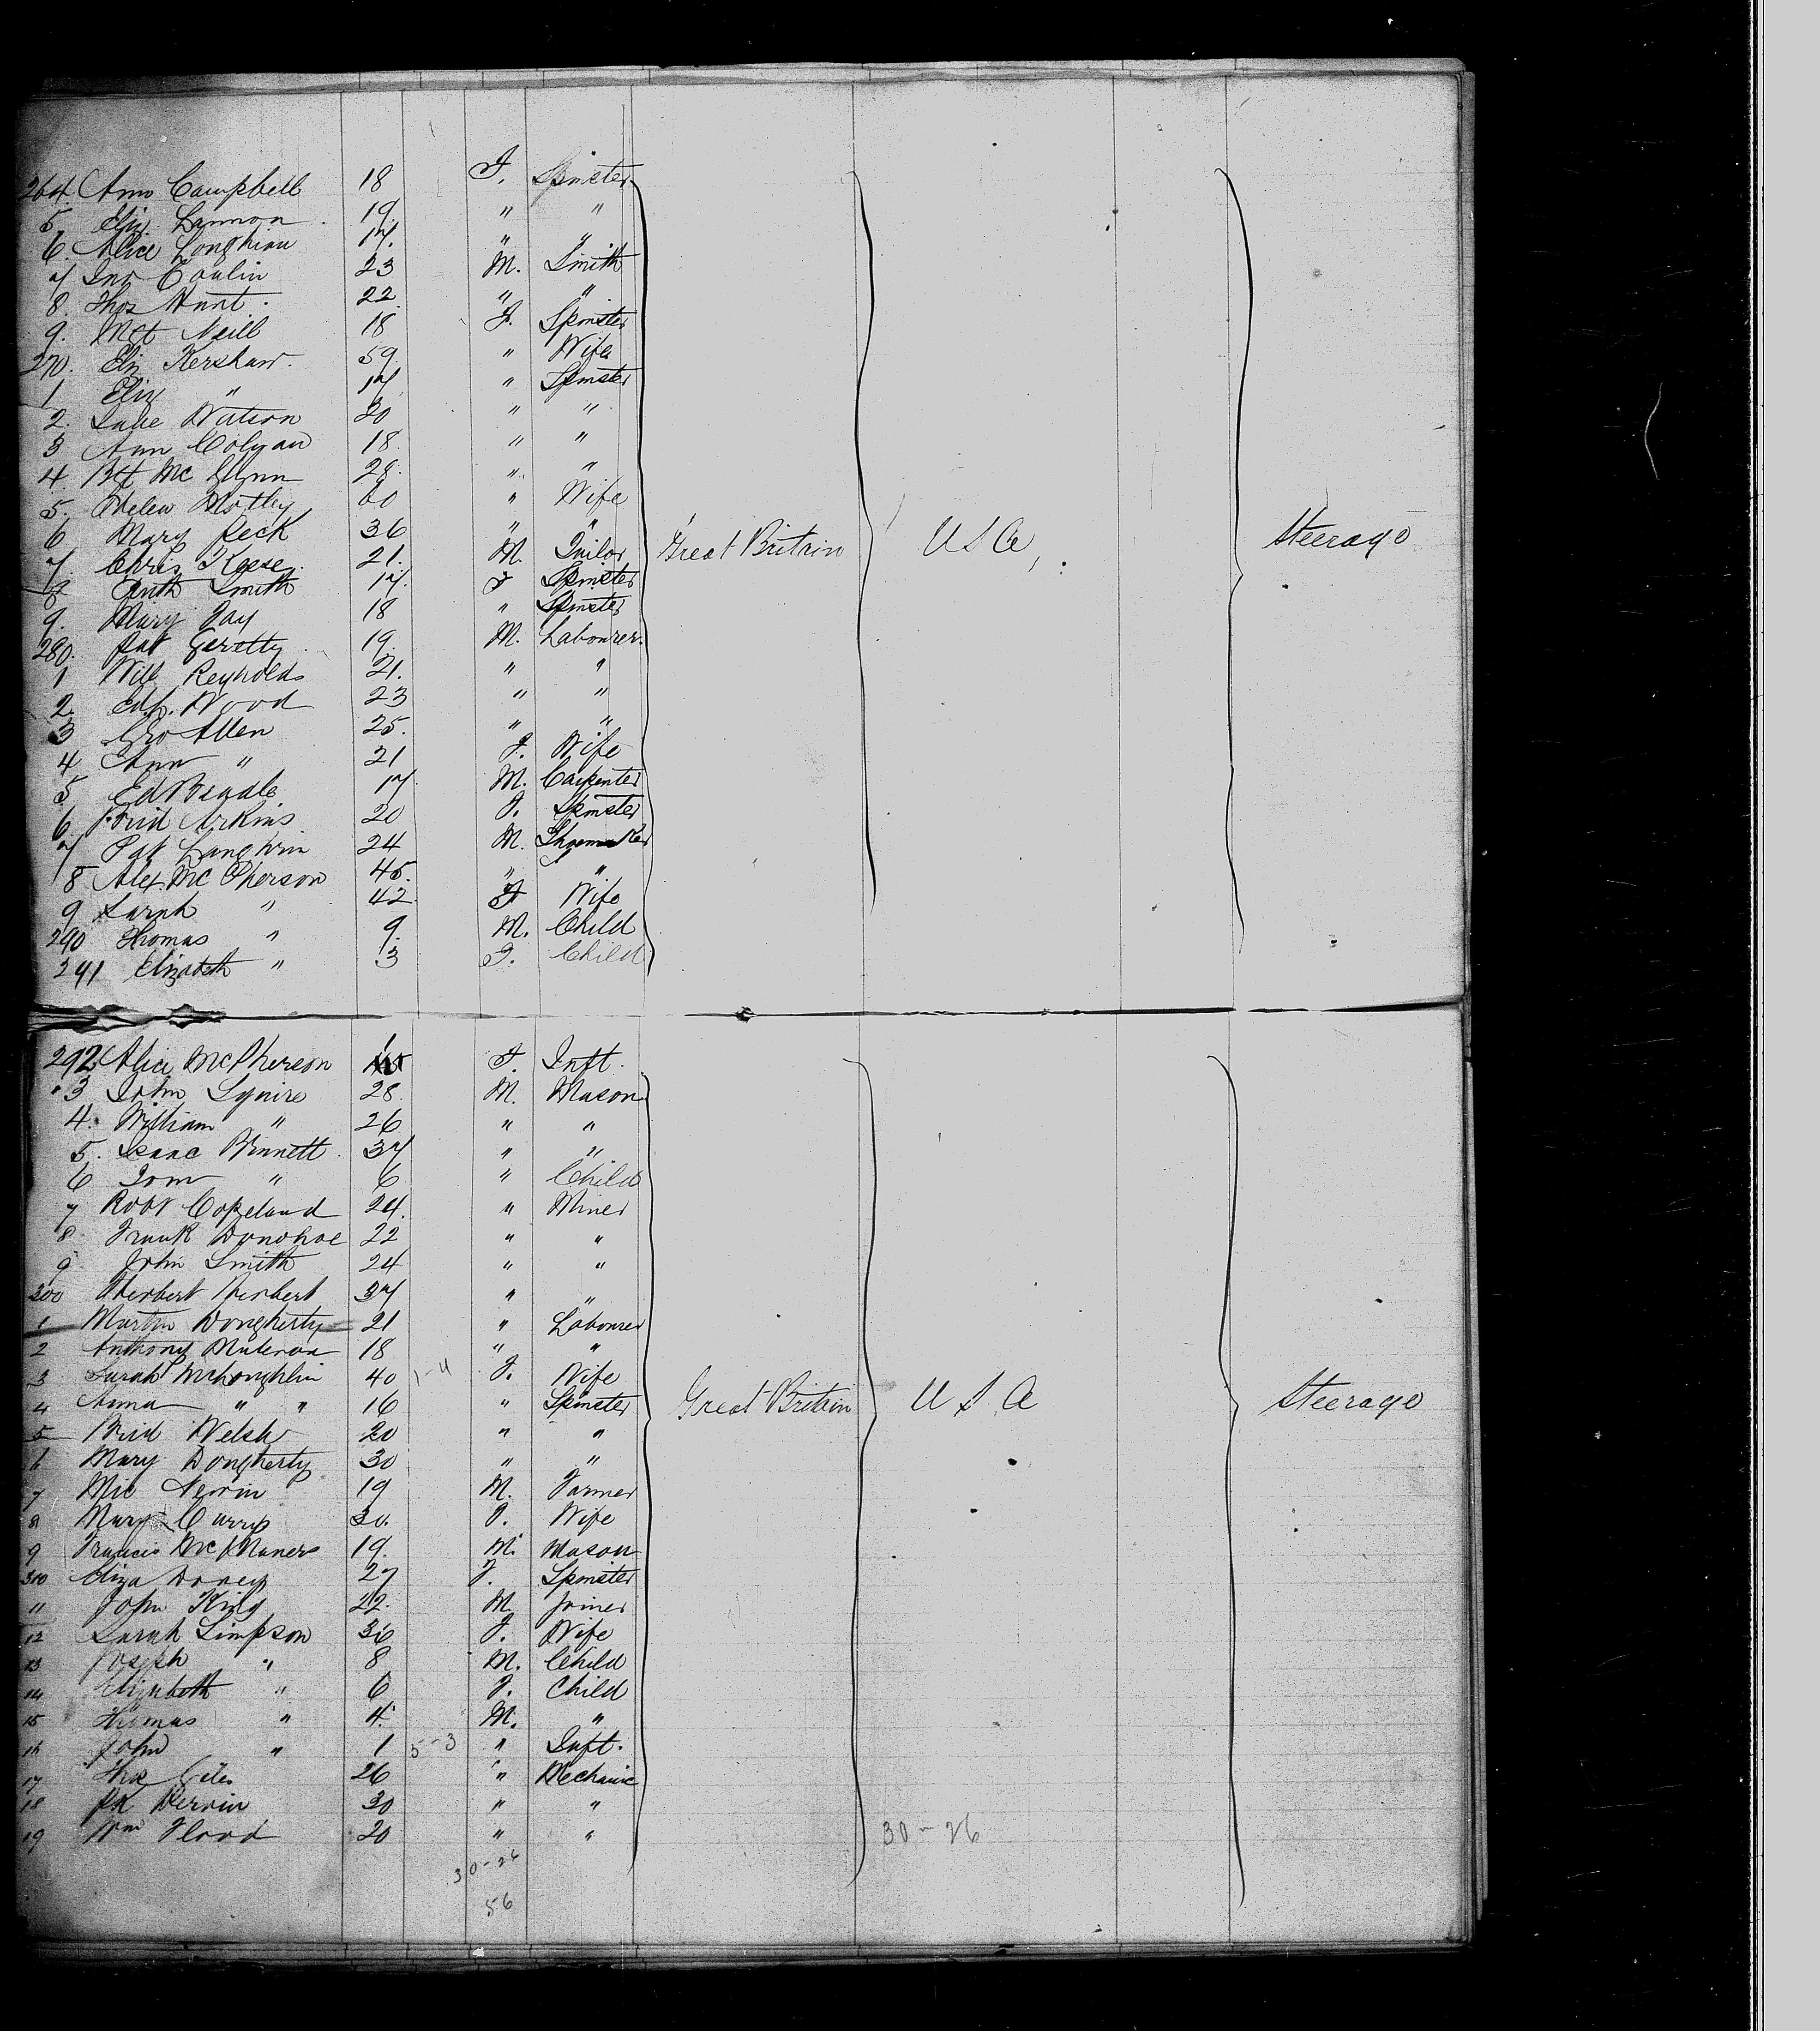 264. Ann Campbell 18 F. Spinster
5. Eliz. Lannon 19 " "
6. Alice Longhian 17. " "
7 Jno Conlin 23 M. Smith
8. Thos Hunt. 22. " "
9. Mgt Neill 18 F. Spinster
270. Eliz Kershaw. 59. " Wife
1 Eliz " 17 " Spinster
2. Jane Watson 20 " "
3 Ann Colgan 18. " "
4. Bgt Mc Glynn 28. " "
5. Helen Motley 60 " Wife
6 Mary Peck 36 " "
7. Chris Keese. 21. M. Tailor Great Britain U S A, Steerage
8 Smith 17. F Spinster
9. Mary Jay 18 " Spinster
280. Pat Geratty 19. M. Labourer.
1 Will Reynolds 21. " "
2. Edw. Wood 23 " "
3 Geo Allen 25. " "
4 Ann " 21 F. Wife
5 Ed Beadle 17 M. Carpenter
6 Brid Arkins 20 F. Spinster
7 Pat Langhrin 24 M. Shoemaker
8 Alex. Mc Pherson 45. " "
9 Sarah " 42 F Wife
290 Thomas " 9. M. Child
291 Elizabeth " 3 F. Child
292. Alice McPherson F. Inft.
" 3 John Squire 28. M. Mason
4. William " 26 " "
5. Isaac Binnett. 37 " "
6 Tom " 6 " Child
7 Robt Copeland 24. " Miner
8 Frank Donohoe 22 " "
9 John Smith 24 " "
300 Herbert Herbert 37 " "
1 Martin Dougherty 21 " Labourer
2 Anthony 18 " "
3 Sarah McLoughlin 40 1-4 F. Wife
4 Anna " " 16 " Spinster Great Britain U S A Steerage
5 Brid Welsh 20 " "
6 Mary Dougherty 30 " "
7 Mic Nevin 19 M. Farmer
8 Mary Curry 30. F. Wife
9 Francis McManers 19. M. Mason
310 Eliza Doney 27 F. Spinster
11 John King 22. M. Joiner
12 Sarah Simpson 36 F. Wife
13 Joseph " 8 M. Child
14 Elizabeth " 6 F. Child
15 Thomas " 4. M. "
16 John " 1 5-3 " Inft.
17 Thos Giles 26 " Mechanic
18 Pk Dervin 30 " "
19 Wm Flood 20 " " 30-26
30-26
56